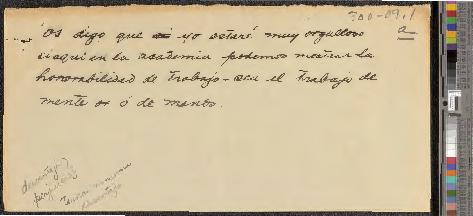 300-09.1
a
"Os digo que si yo estaré muy orgulloso
si aqui en la academia podemos mostrar la
honorabilidad de trabajo - sea el trabajo de
mente os ó de manos.